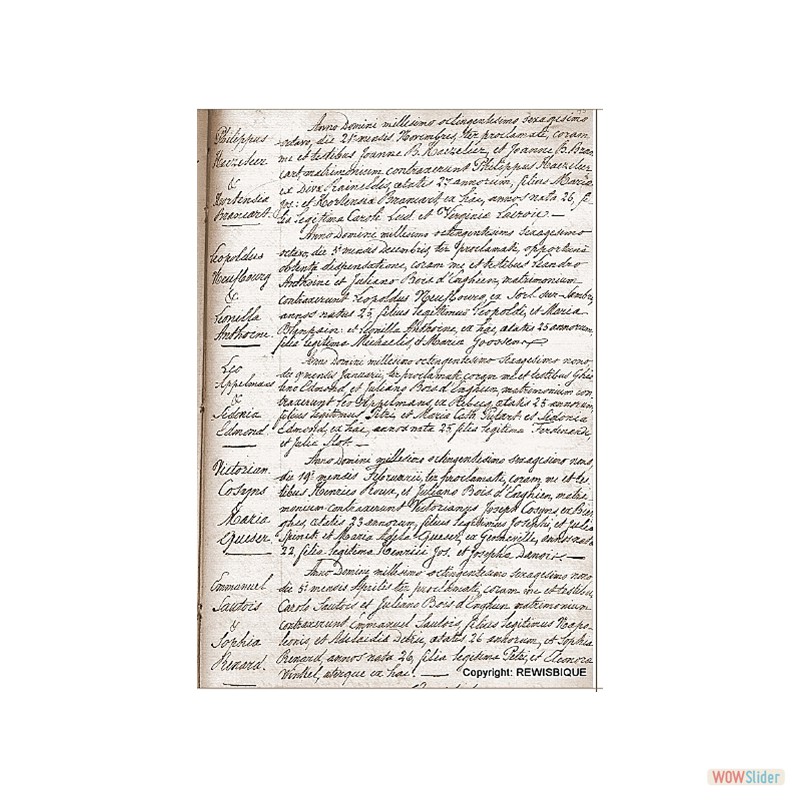 Philippus
Haezeleer
&
Hortensia
Brancart.
Anno Domini millesimo octingentesimo sexagesimo
octavo, die 21ª mensis Novembris, ter proclamati, coram
me et testibus Joanne B. Haezeleer, et Joanne B. Bran
cart, matrimonium contraxerunt Philippus Haezeleer
ex Divæ Raineldis, ætatis 27 annorum, filius Mariæ
Jos: et Hortensia Brancart ex hac, annos nata 26, fi-
lia legitima Caroli Lud. et Virginia Lacroix. —
Leopoldus
Neufbourg
&
Leonilla
Anthoine.
Anno Domini millesimo octingentesimo sexagesimo
octavo, die 3ª mensis Decembris, ter proclamati, opportuna
obtenta dispensatione, coram me et testibus Leandro
Anthoine et Juliano Bois d'Enghien, matrimonium
contraxerunt Leopoldus Neufbourg, ex
annos natus 25, filius legitimus Leopoldi, et Maria
et Leonilla Anthoine, ex hac, ætatis 25 annorum,
filia legitima Michaelis, et Maria Goossens
Leo
Appelmans
&
Sidonia
Edmond.
Anno Domini millesimo octingentesimo sexagesimo nono,
die mensis Januarii, ter proclamati, coram me et testibus Ghis
leno Edmond, et Juliano Bois d'Enghien, matrimonium con
traxerunt Leo Appelmans, ex Rebecq, ætatis 23 annorum,
filius legitimus Petri et Maria Cath. et Sidonia
Edmond, ex hac, annos nata 25, filia legitima Ferdinandi,
et Julia —
Victorianus
Cosyns
Maria
Gueset.
Anno Domini millesimo octingentesimo sexagesimo nono,
die 19ª mensis Februarii, ter proclamati, coram me et tes-
tibus Henrico Roux, et Juliano Bois d'Enghien, matri-
monium contraxerunt Victorianus Joseph Cosyns, ex
ætatis 23 annorum, filius legitimus Josephi, et Julia
Spinet et Maria Adela Gueset, ex annos nata
22, filia legitima Henrici Jos. et Josepha —
Emmanuel
Sautois
&
Sophia
Renard.
Anno Domini millesimo octingentesimo sexagesimo nono
die 3ª mensis Aprilis ter proclamati, coram me et testibus
Carolo Sautois et Juliano Bois d'Enghien matrimonium
contraxerunt Emmanuel Sautois, filius legitimus Napo-
leonis, et Adelaidis Detrie, ætatis 26 annorum, et Sophia
Renard, annos nata 26, filia legitima Petri, et Eleonora
Vinkel, uterque ex hac. —
Copyright: REWISBIQUE
WOWSlider